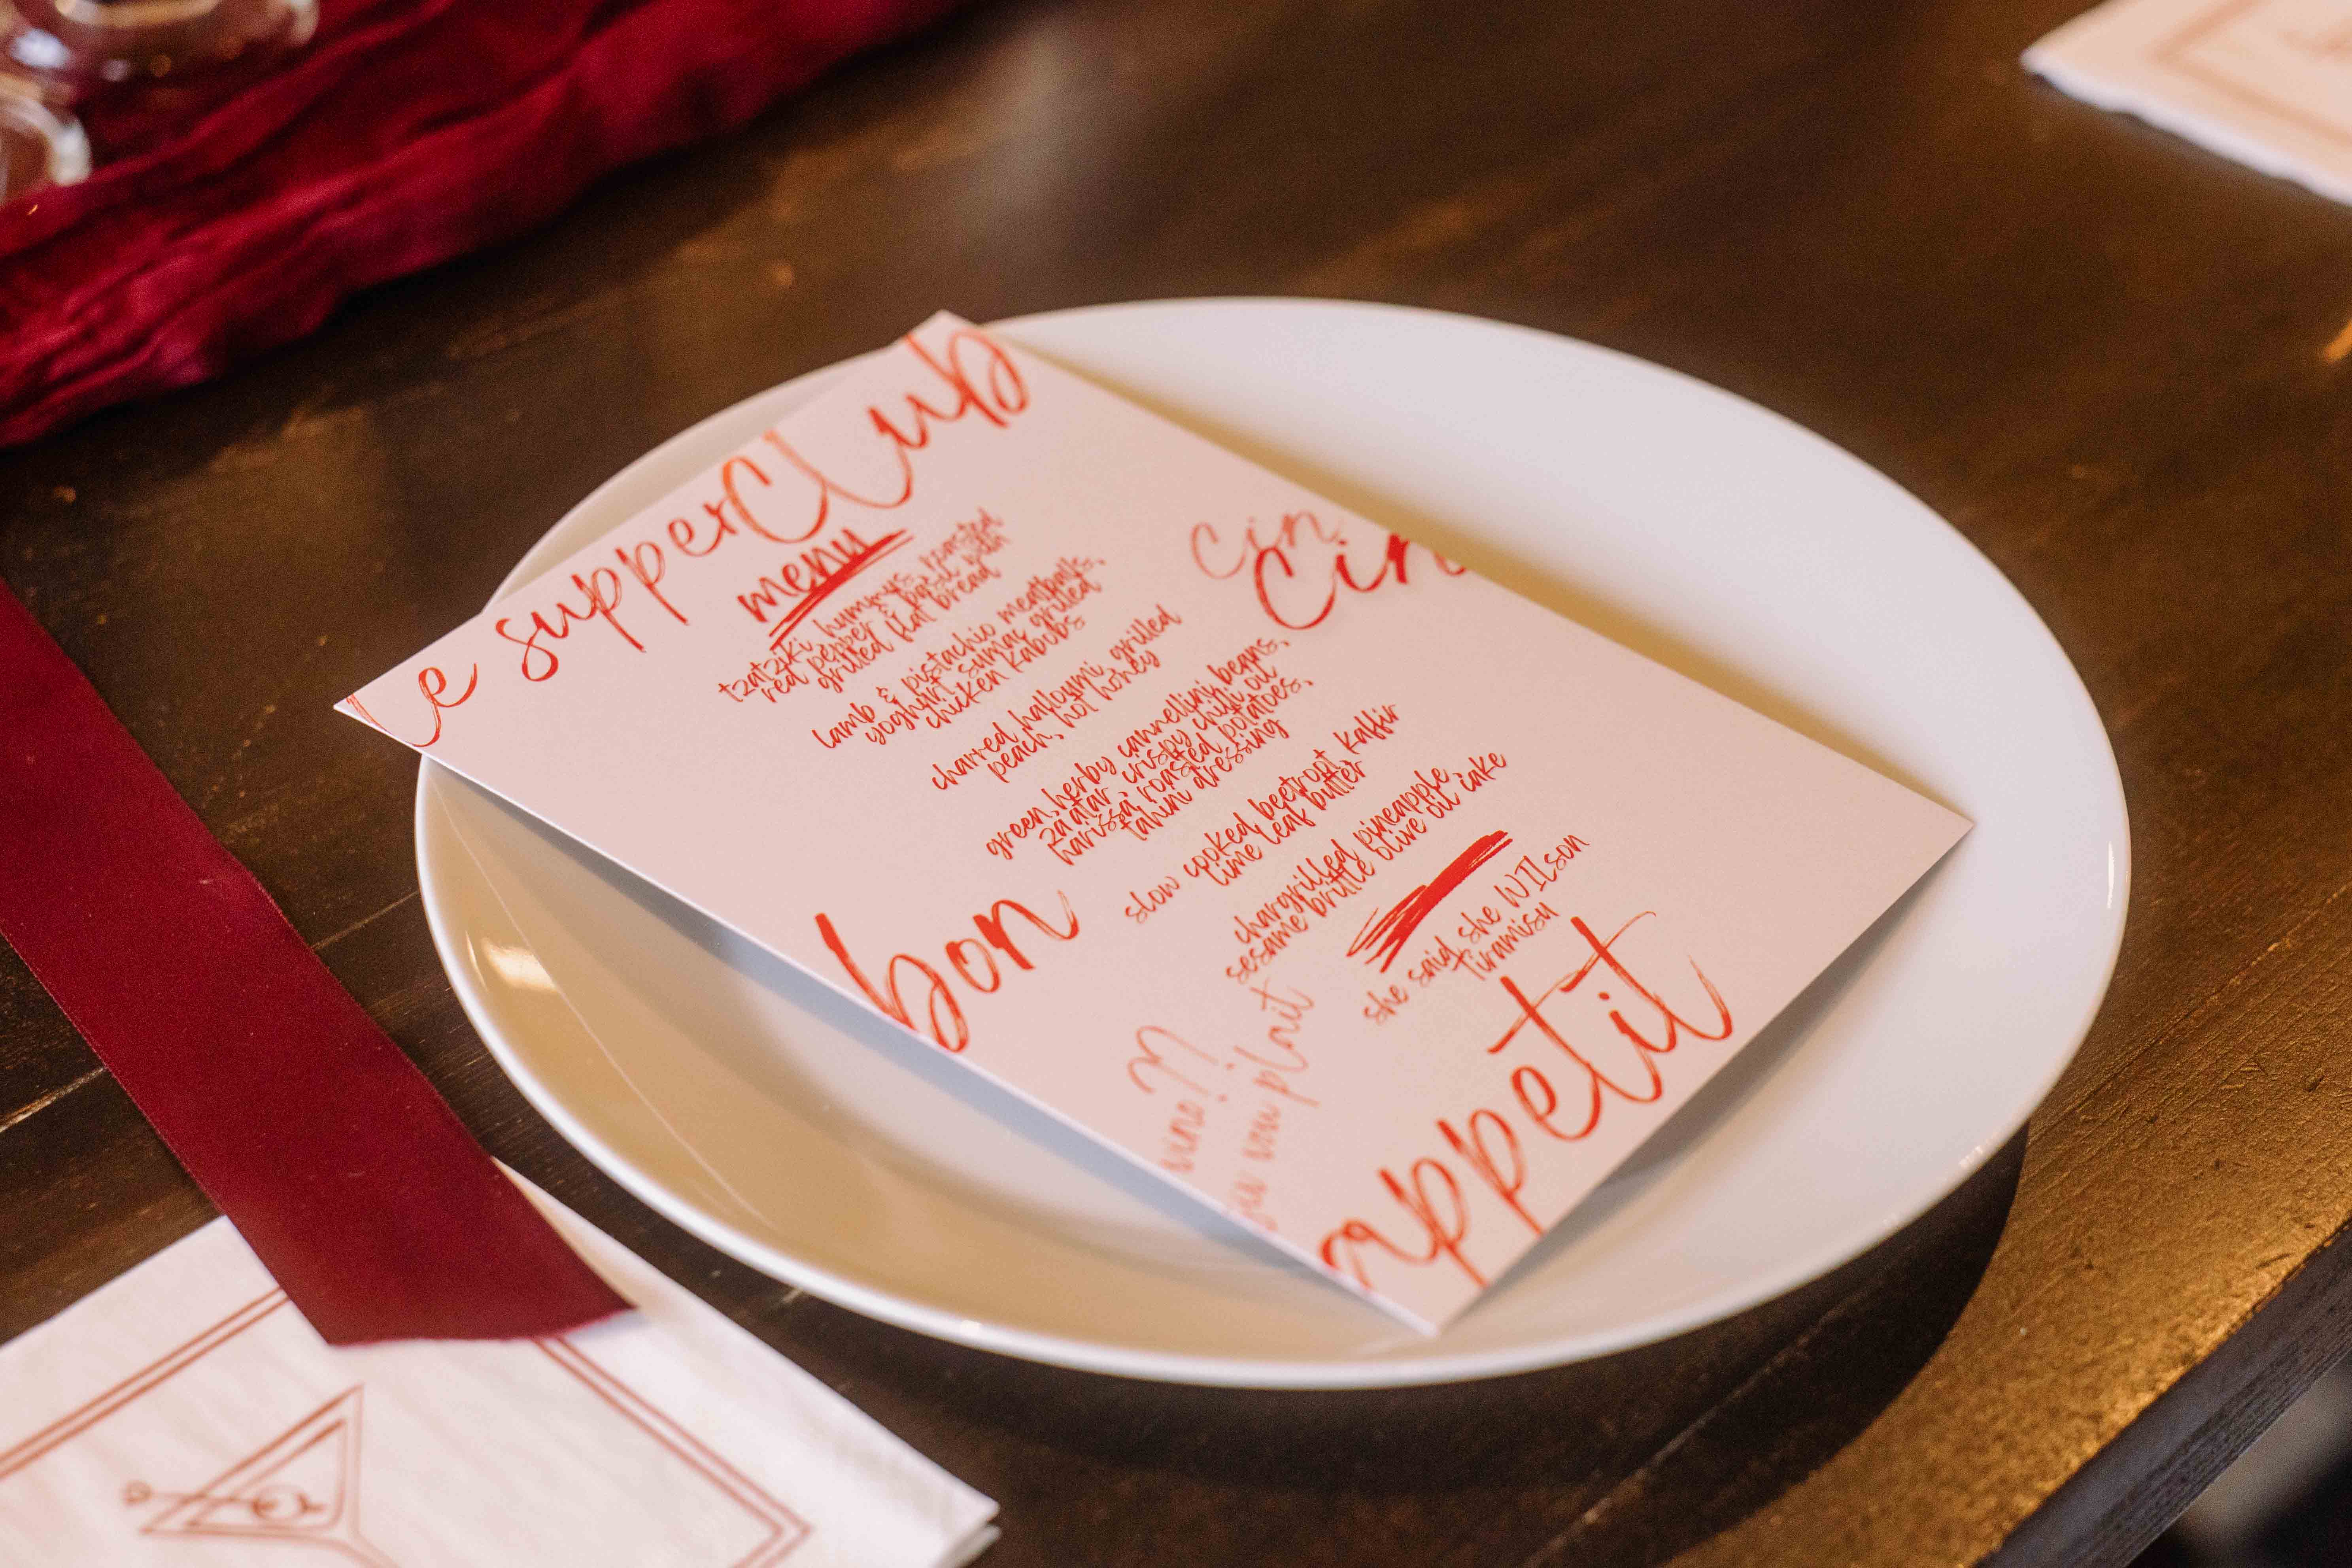 le supperClub
menu
tzatziki, hummus, roasted
red pepper & basil with
grilled flat bread
lamb & pistachio meatballs,
yoghurt sumac grilled
chicken kabobs
charred halloumi, grilled
peach, hot honey
cin
cin
green herby cannellini beans,
za'atar crispy chili oil
harissa roasted potatoes,
tahini dressing
slow cooked beetroot kaffir
lime leaf butter
chargrilled pineapple
sesame brittle olive oil cake
bon
she said she WILson
Tiramisu
vino??
vous plait
appetit